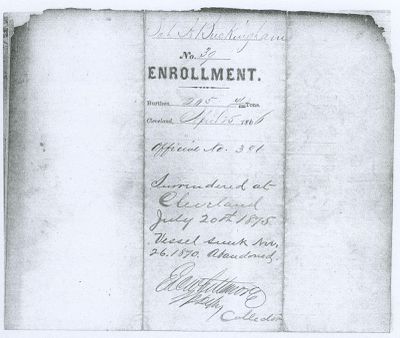 Buckingham
No. 39
ENROLLMENT.
Burthen, 205 Tons.
Cleveland, April 5 1866
Official No. 391
Surrendered at
Cleveland
July 20th 1875
Vessel sunk Nov.
26. 1870. Abandoned.
Deputy
Collector